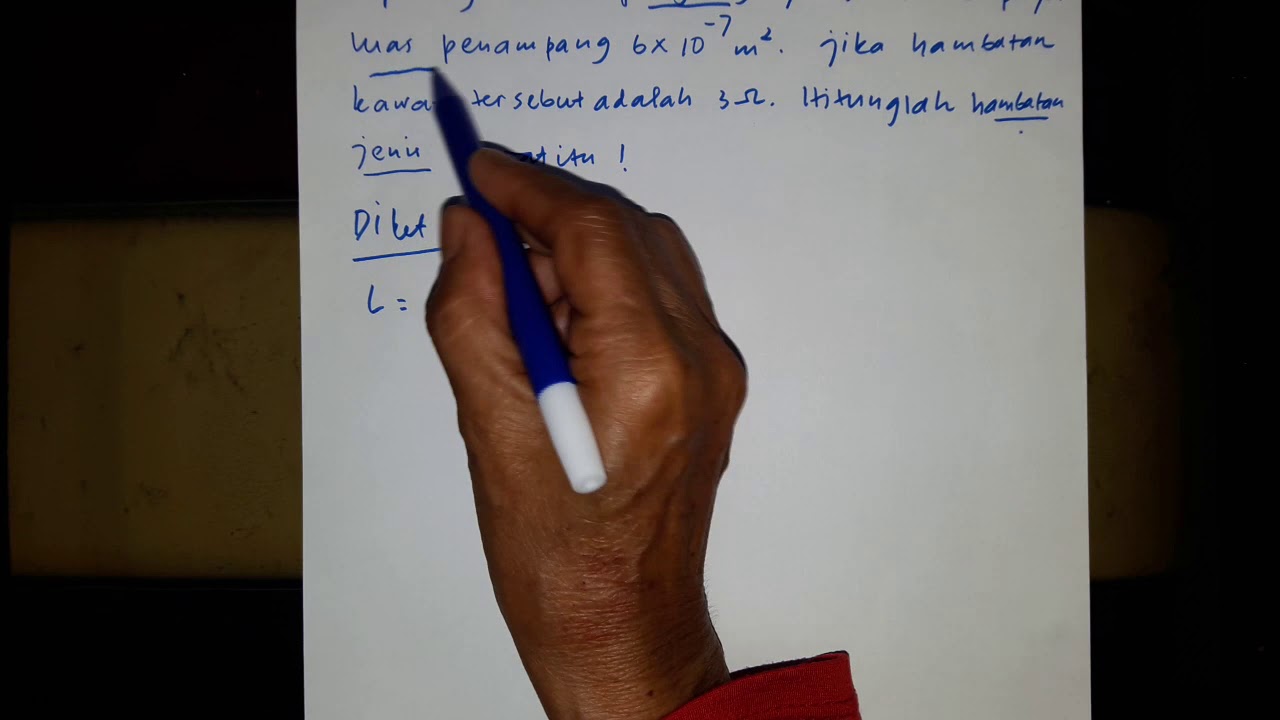 luas penampang 6 x 10⁻⁷ m². jika hambatan
kawat tersebut adalah 3 Ω. Hitunglah hambatan
jenis itu !
Diket
L =